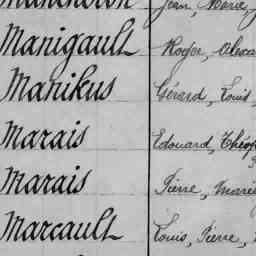 Jean, Marie,
Manigault Roger, Alexa
Manikus Gérard, Louis,
Marais Edouard, Théop
Marais Pierre, Marie
Marcault Louis, Pierre,